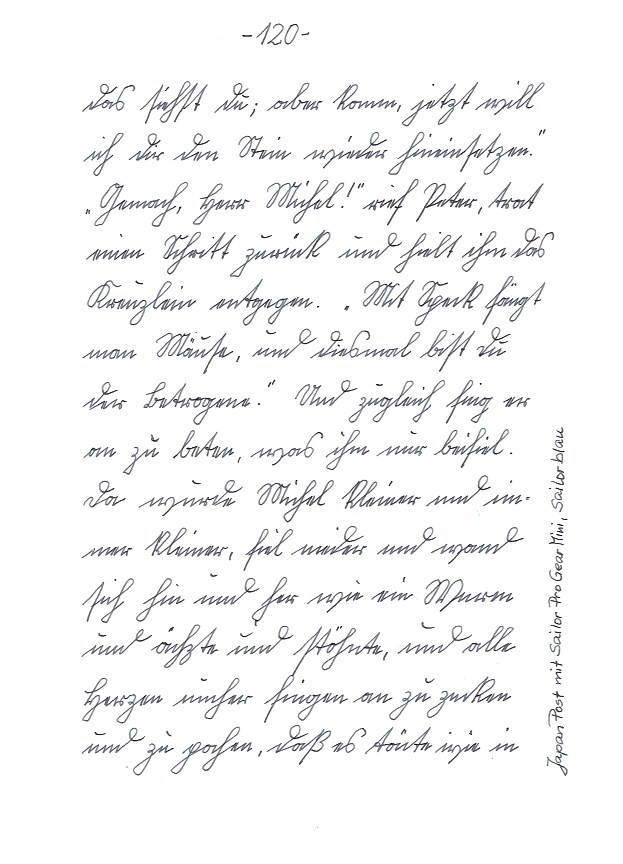 -120-
das siehst du; aber komm, jetzt will
ich dir den Stein wieder hineinsetzen."
„Gemach, Herr Michel!" rief Peter, trat
einen Schritt zurück und hielt ihm das
Kreuzlein entgegen. „Mit Speck fängt
man Mäuse, und diesmal bist du
der Betrogene." Und zugleich fing er
an zu beten, was ihm nur beifiel.
Da wurde Michel kleiner und im-
mer kleiner, fiel nieder und wand
sich hin und her wie ein Wurm
und ächzte und stöhnte, und alle
Herzen umher fingen an zu zucken
und zu pochen, daß es tönte wie in
Japan Post mit Sailor Pro Gear Mini, Sailor blau